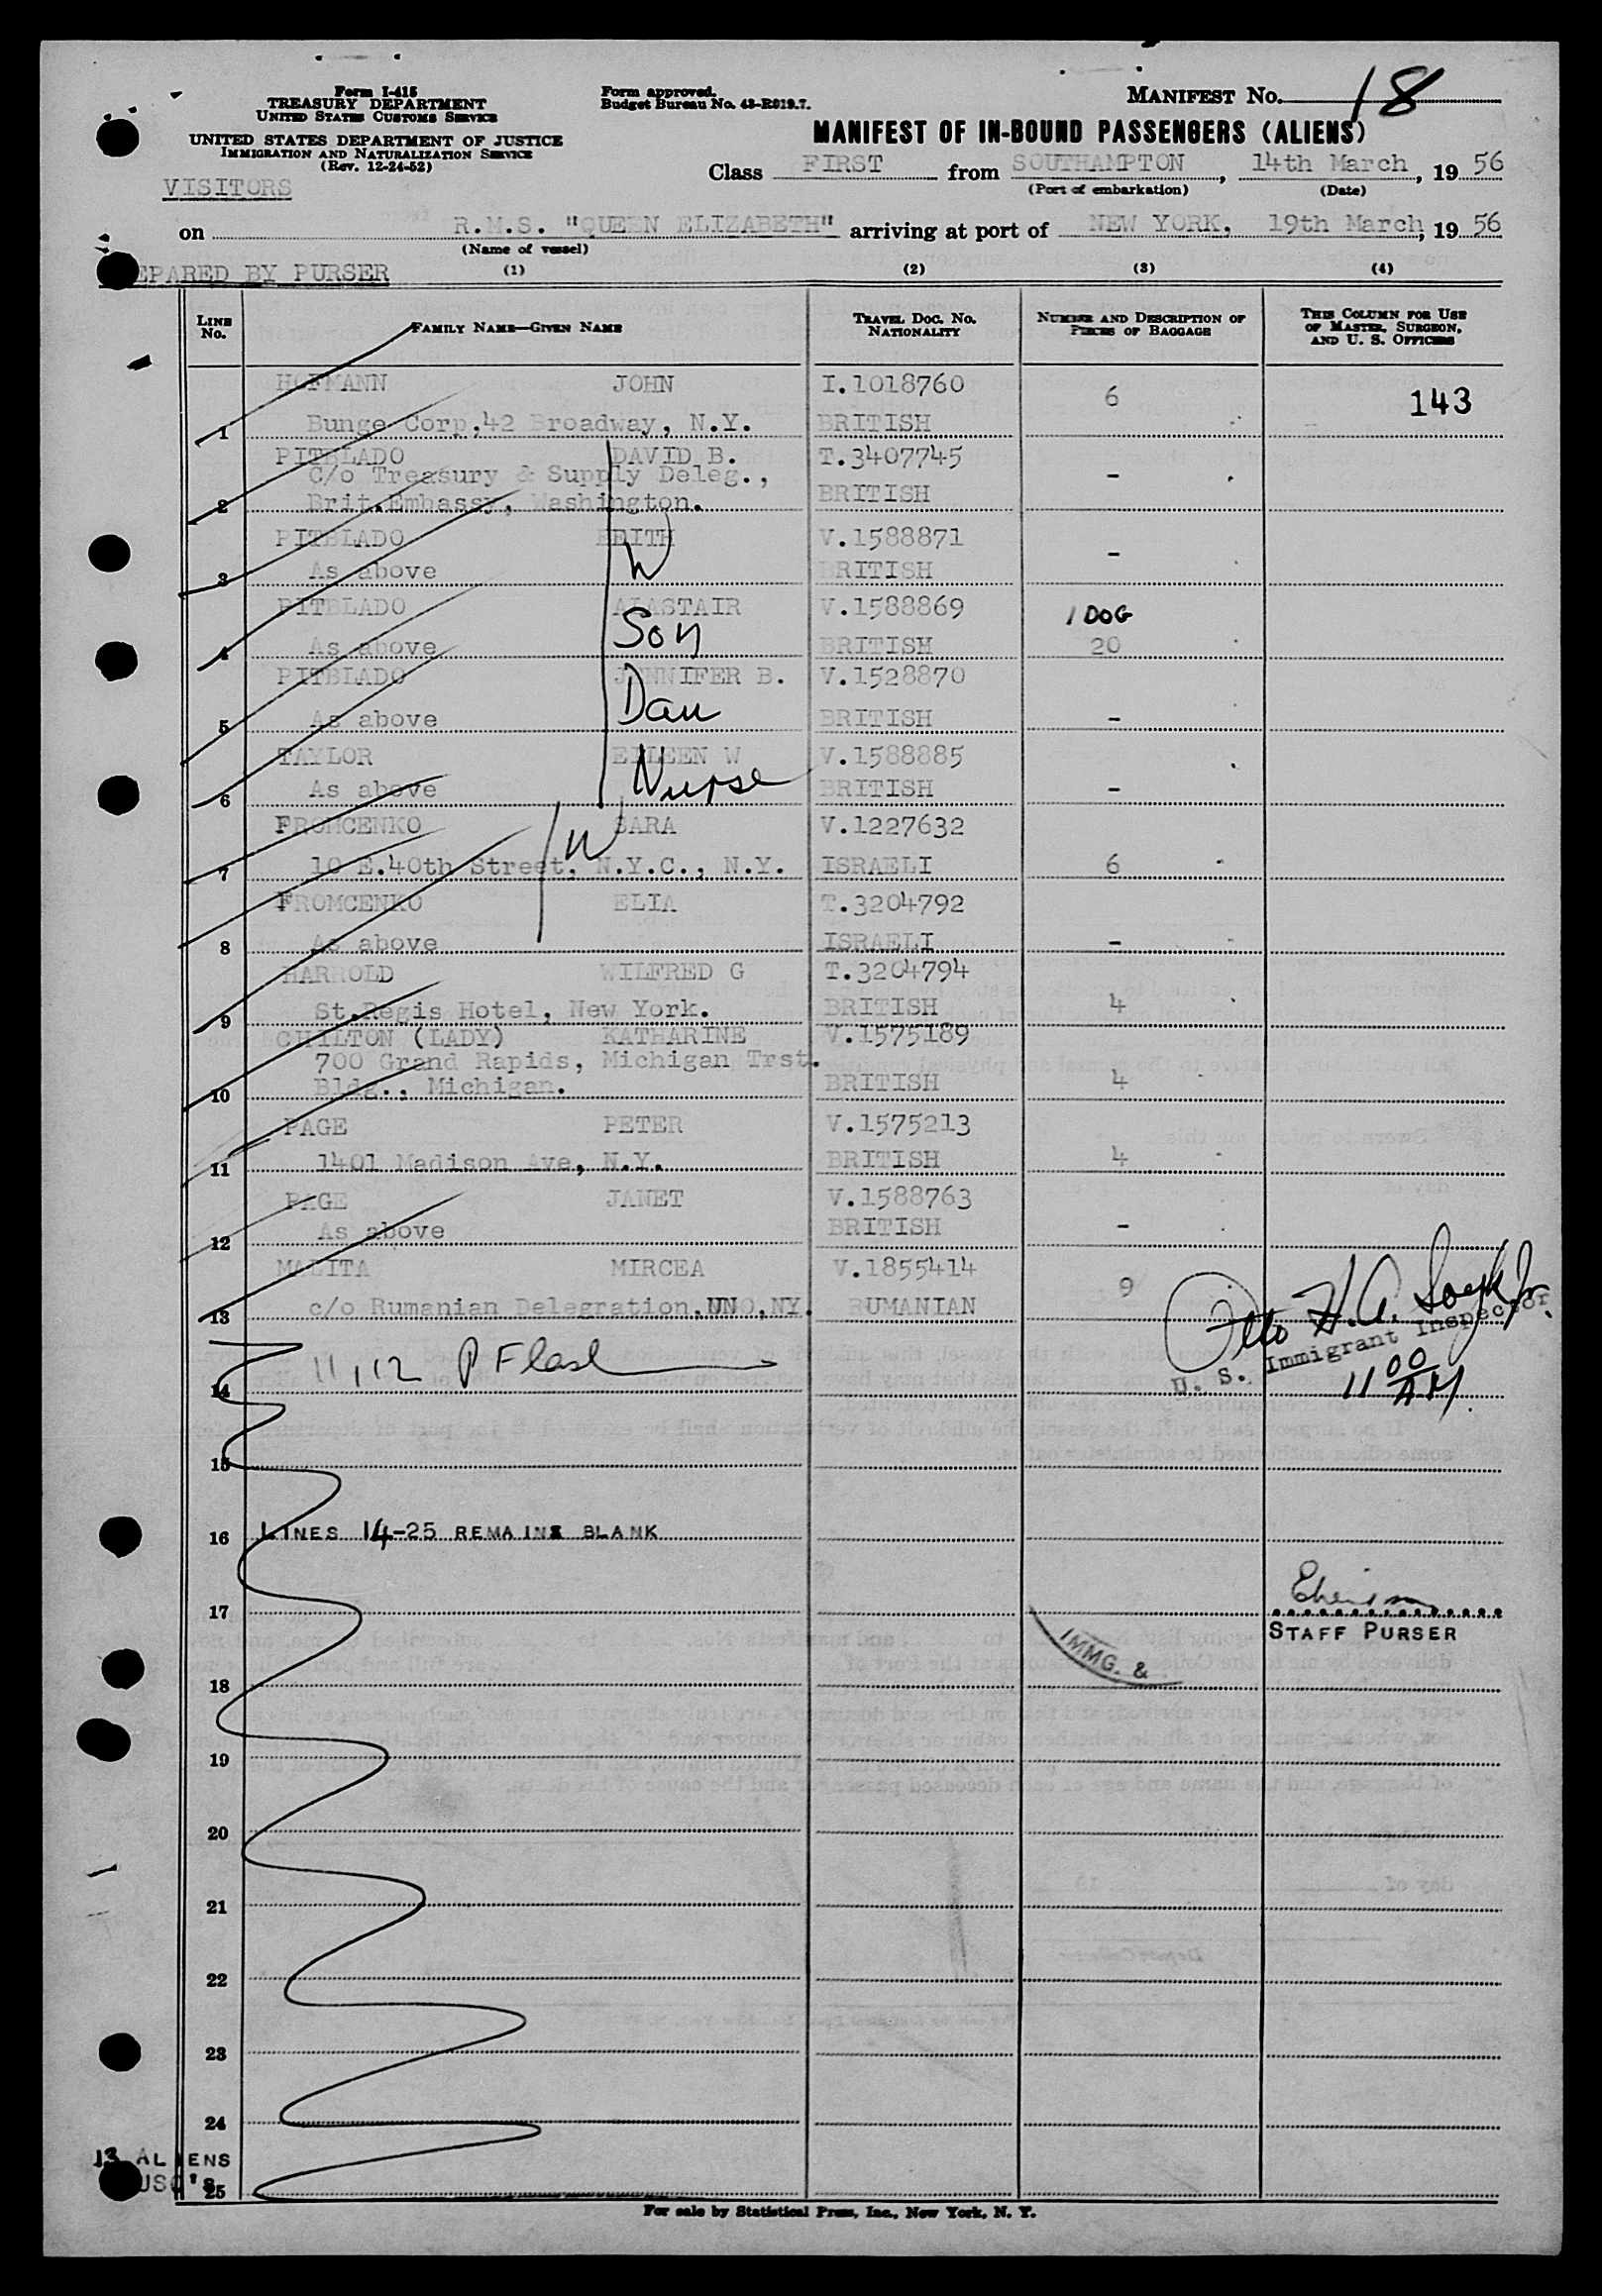 Form I-415
TREASURY DEPARTMENT
UNITED STATES CUSTOMS SERVICE
UNITED STATES DEPARTMENT OF JUSTICE
IMMIGRATION AND NATURALIZATION SERVICE
(Rev. 12-24-52)
VISITORS
Form approved.
Budget Bureau No. 43-R019.7.
MANIFEST No. 18
MANIFEST OF IN-BOUND PASSENGERS (ALIENS)
Class FIRST from SOUTHAMPTON, 14th March, 19 56
(Port of embarkation) (Date)
on R.M.S. "QUEEN ELIZABETH" arriving at port of NEW YORK, 19th March, 19 56
(Name of vessel)
EPARED BY PURSER
(1) (2) (3) (4)
LINE No. FAMILY NAME—GIVEN NAME TRAVEL DOC. No. NATIONALITY NUMBER AND DESCRIPTION OF PIECES OF BAGGAGE THIS COLUMN FOR USE OF MASTER, SURGEON, AND U. S. OFFICERS
HOFMANN JOHN I.1018760 6 143
1 Bunge Corp,42 Broadway, N.Y. BRITISH
PITBLADO DAVID B. T.3407745
C/o Treasury & Supply Deleg., -
2 Brit.Embassy, Washington. BRITISH
PITBLADO EDITH V.1588871 -
3 As above W BRITISH
PITBLADO ALASTAIR V.1588869 1 DOG
4 As above Son BRITISH 20
PITBLADO JENNIFER B. V.1528870
5 As above Dau BRITISH -
TAYLOR EILEEN W V.1588885
6 As above Nurse BRITISH -
FROMCENKO SARA V.1227632
W
7 10 E.40th Street, N.Y.C., N.Y. ISRAELI 6
FROMCENKO ELIA T.3204792
8 As above ISRAELI -
HARROLD WILFRED G T.3204794
9 St.Regis Hotel, New York. BRITISH 4
CHILTON (LADY) KATHARINE V.1575189
700 Grand Rapids, Michigan Trst.
10 Bldg., Michigan. BRITISH 4
PAGE PETER V.1575213
11 1401 Madison Ave, N.Y. BRITISH 4
PAGE JANET V.1588763
12 As above BRITISH -
MALITA MIRCEA V.1855414 9
13 c/o Rumanian Delegration,UNO,NY. RUMANIAN
11,12
U. S. Immigrant Inspector
11 00 AM
14
15
16 LINES 14-25 REMAINS BLANK
17
STAFF PURSER
IMMG. &
18
19
20
21
22
23
24
13 ALIENS
USC'S
25
For sale by Statistical Press, Inc., New York, N. Y.